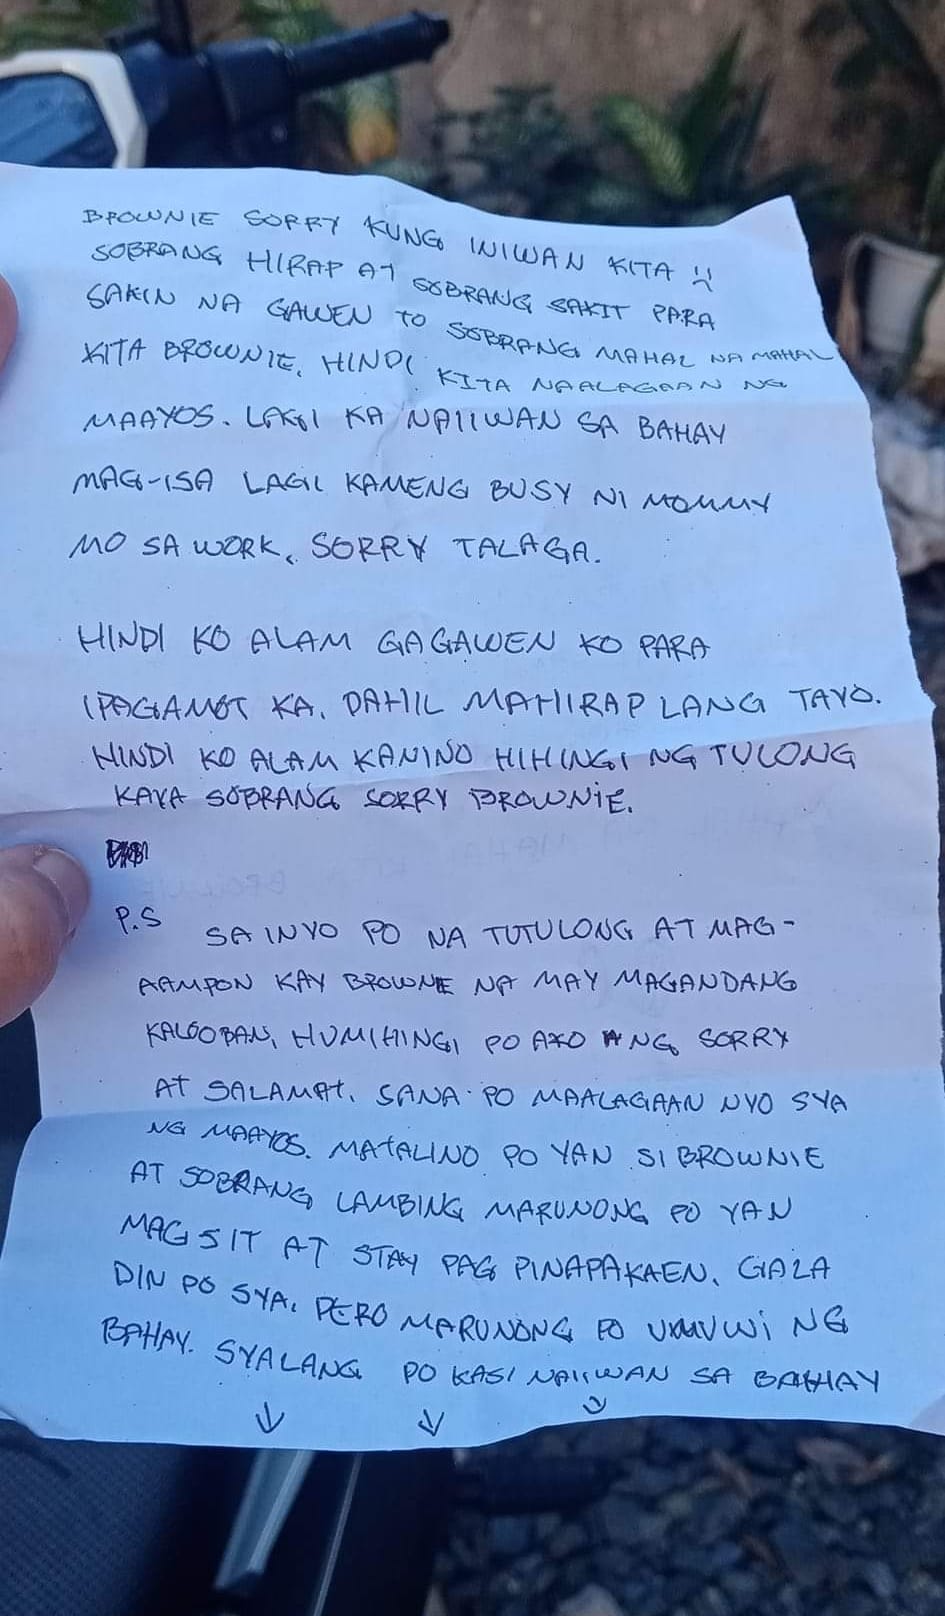 BROWNIE SORRY KUNG INIWAN KITA :(
SOBRANG HIRAP AT SOBRANG SAKIT PARA
SAKIN NA GAWEN TO SOBRANG MAHAL NA MAHAL
KITA BROWNIE, HINDI KITA NAALAGAAN NG
MAAYOS. LAGI KA NAIIWAN SA BAHAY
MAG-ISA LAGIL KAMENG BUSY NI MOMMY
MO SA WORK, SORRY TALAGA.
HINDI KO ALAM GAGAWEN KO PARA
IPAGAMOT KA. DAHIL MAHIRAP LANG TAYO.
HINDI KO ALAM KANINO HIHINGI NG TULONG
KAYA SOBRANG SORRY BROWNIE.
P.S SA INYO PO NA TUTULONG AT MAG-
AAMPON KAY BROWNIE NA MAY MAGANDANG
KALOOBAN, HUMIHINGI PO AKO NG SORRY
AT SALAMAT. SANA PO MAALAGAAN NYO SYA
NG MAAYOS. MATALINO PO YAN SI BROWNIE
AT SOBRANG LAMBING MARUNONG PO YAN
MAG SIT AT STAY PAG PINAPAKAEN. GALA
DIN PO SYA. PERO MARUNONG PO UMUWI NG
BAHAY. SYALANG PO KASI NAIIWAN SA BAHAY